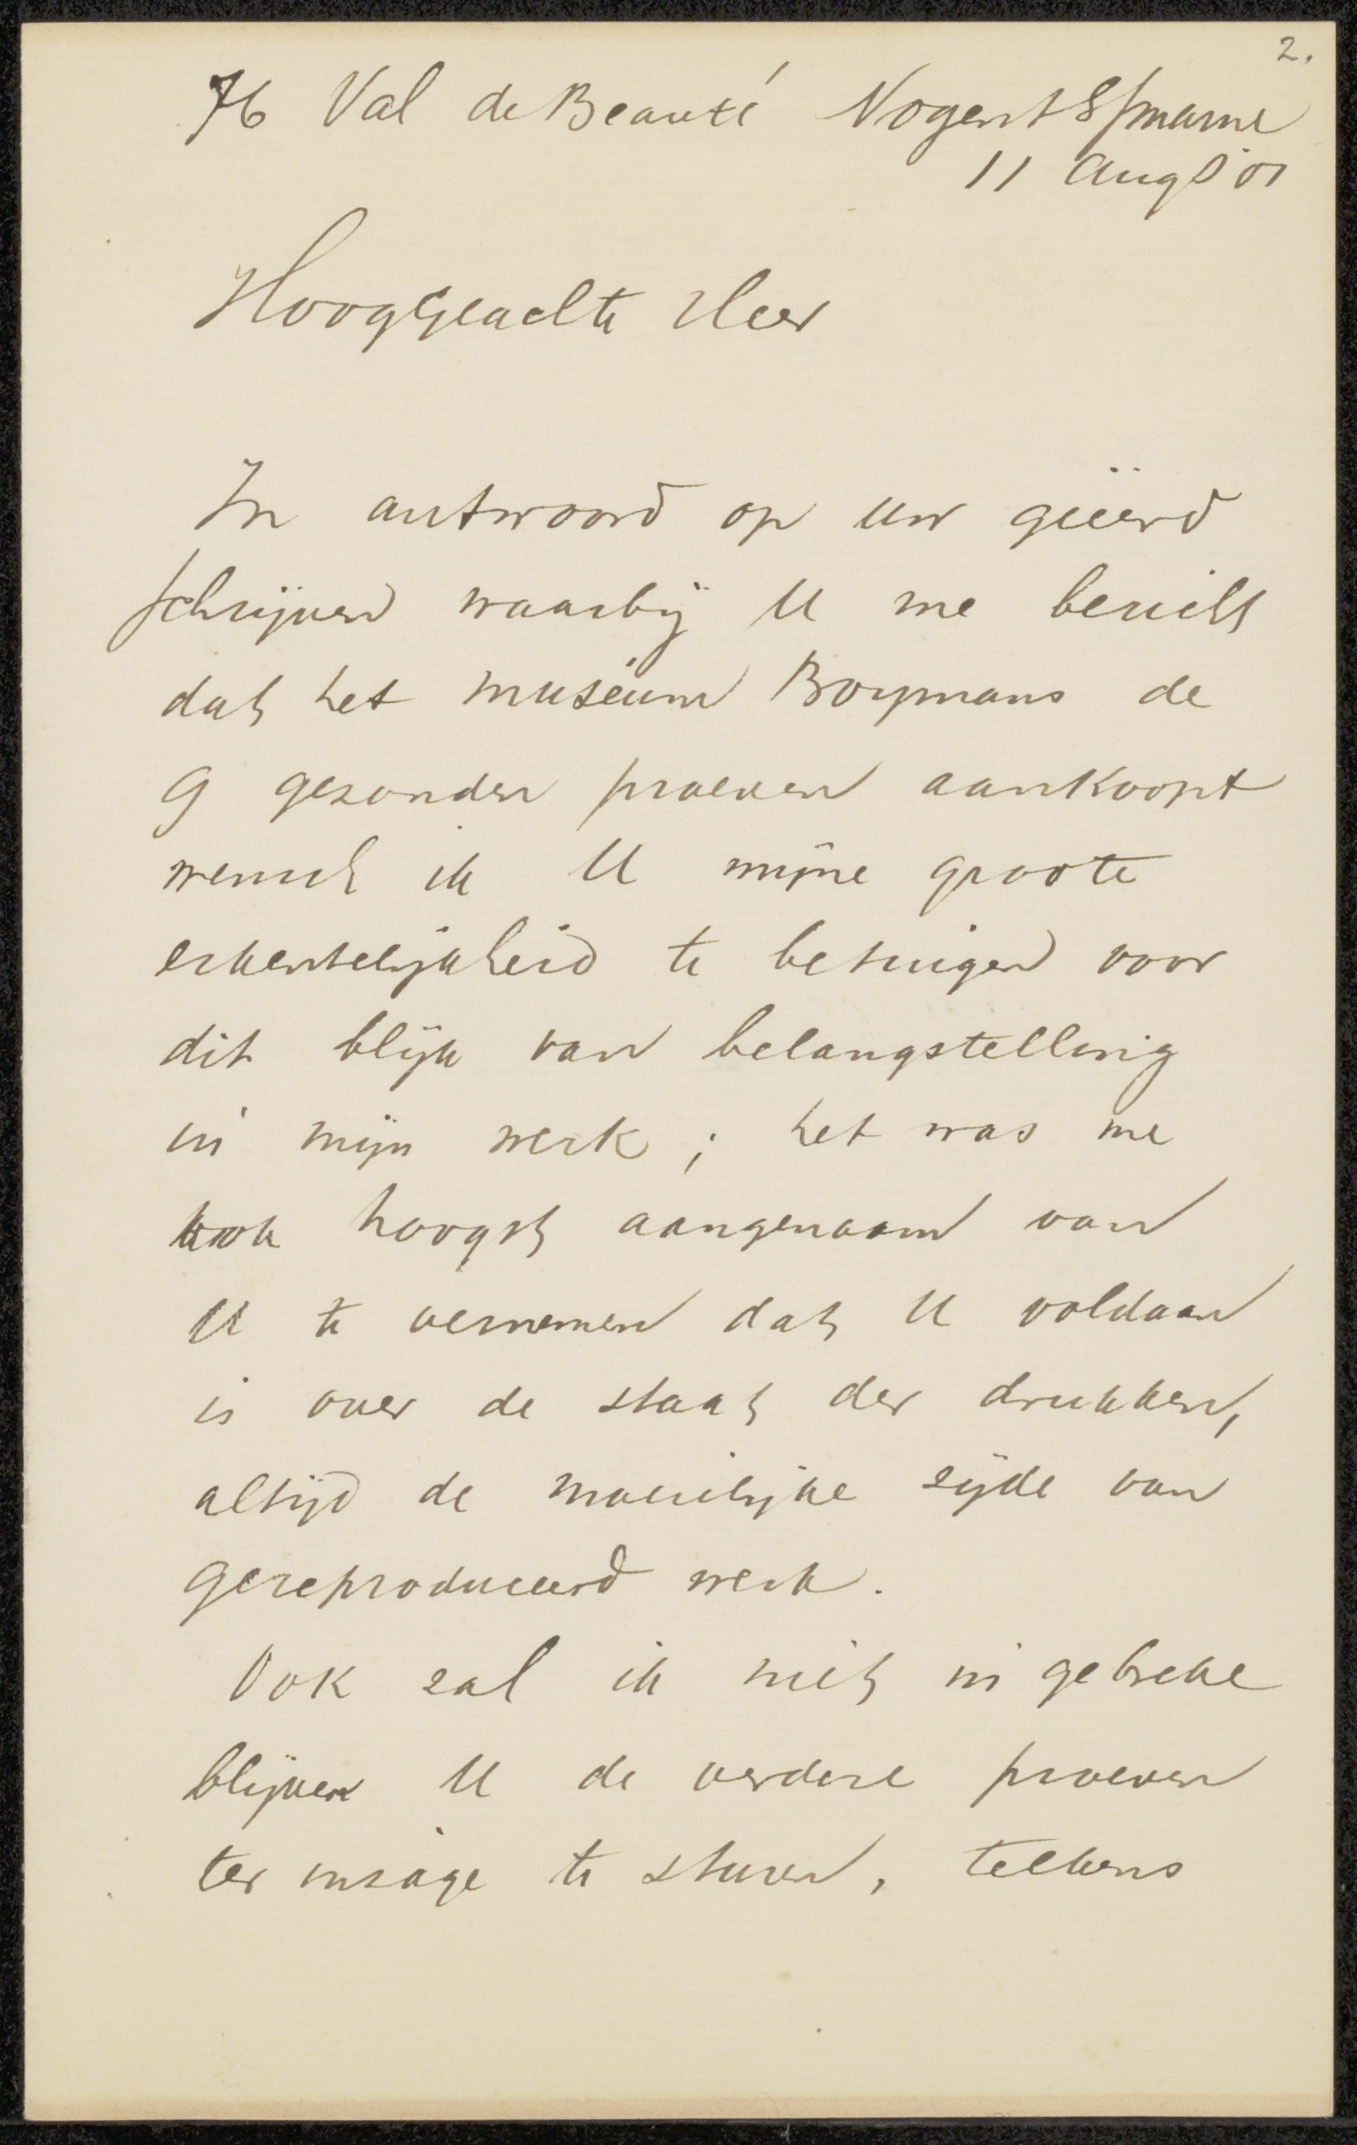 2.
76 Val de Beauté Nogent S/marne
11 Augs 01
HoogGeachte Heer
In antwoord op uw geëerd
schrijven waarbij U me bericht
dat het muséum Boymans de
9 gezonden proeven aankoopt
wensch ik U mijne groote
erkentelijkheid te betuigen voor
dit blijk van belangstelling
in mijn werk ; het was me
ook hoogst aangenaam van
U te vernemen dat U voldaan
is over de staat der drukken,
altijd de moeielijke zijde van
gereproduceerd werk.
Ook zal ik niet in gebreke
blijven U de verdere proeven
ter inzage te sturen, telkens